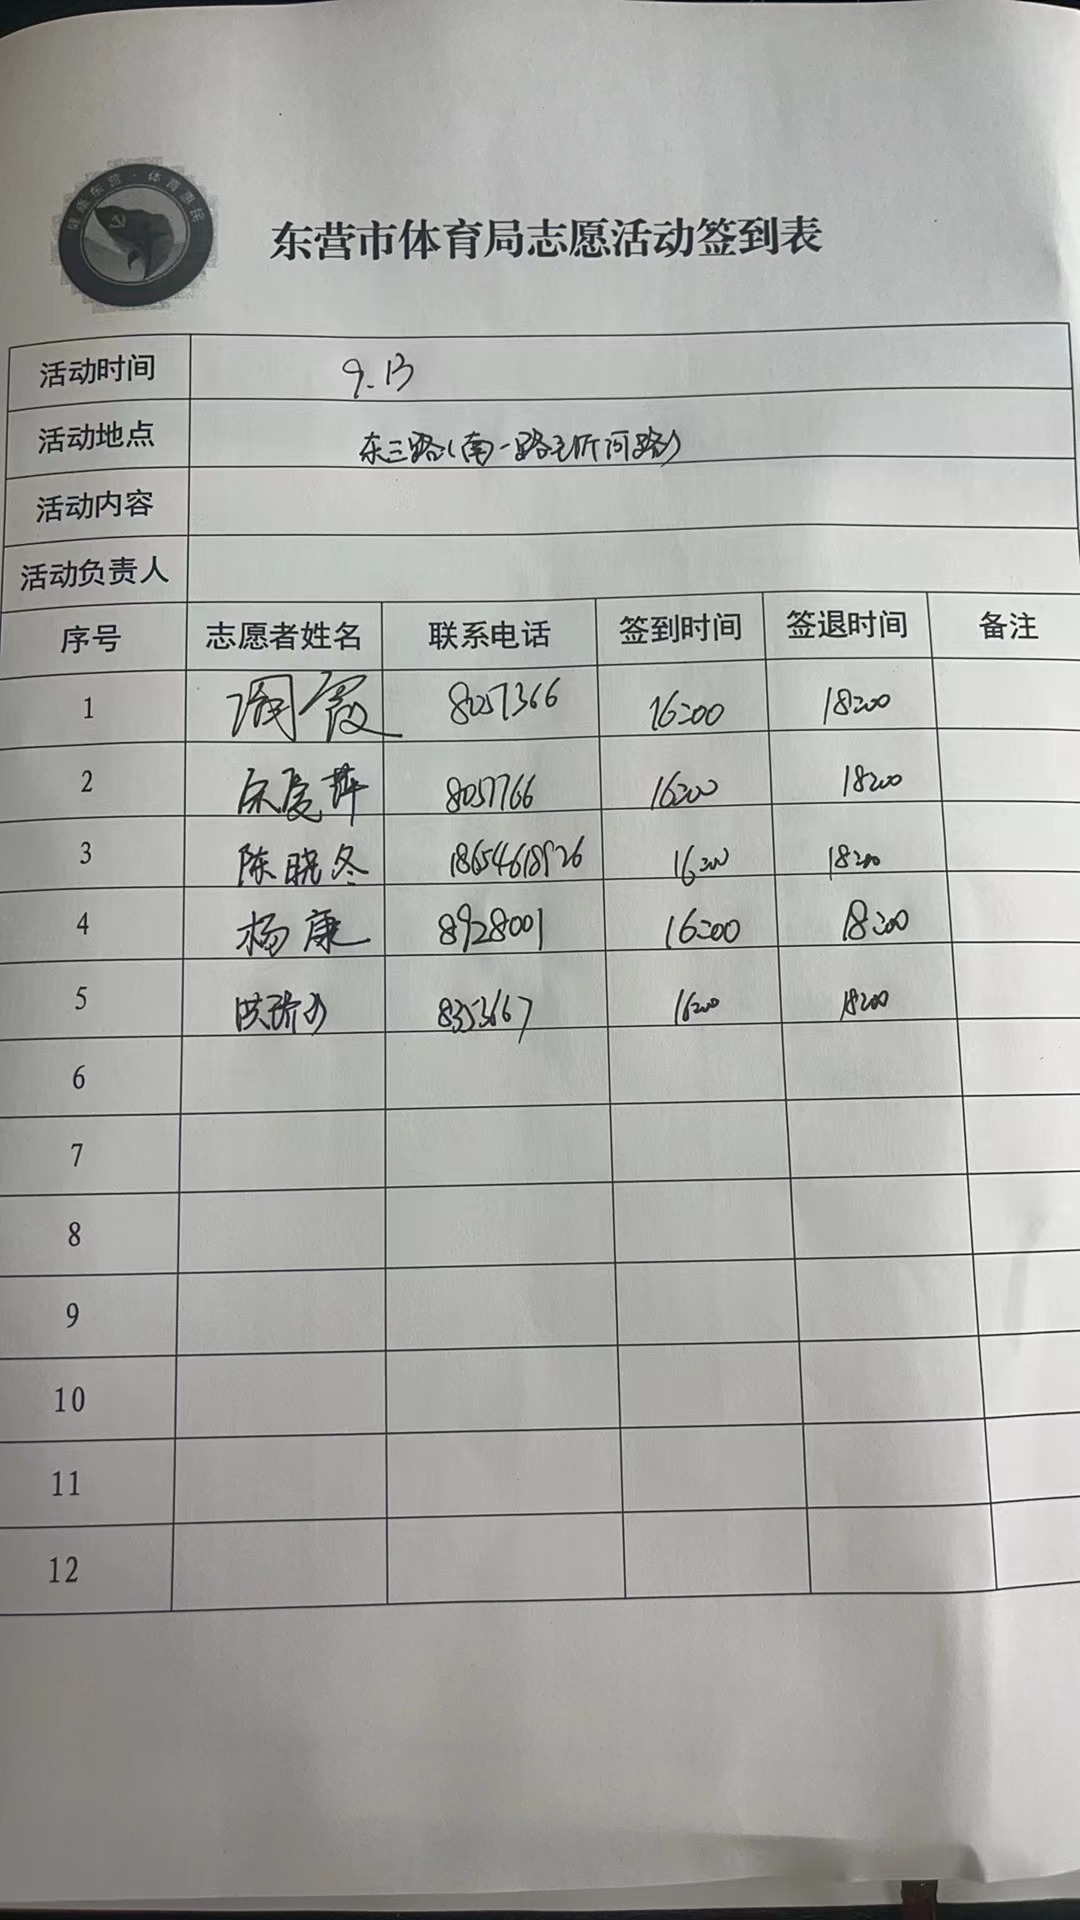 健康东营·体育惠民
东营市体育局志愿活动签到表
活动时间 9.13
活动地点 东三路(南一路至沂河路)
活动内容
活动负责人
序号 志愿者姓名 联系电话 签到时间 签退时间 备注
1 周霞 8057366 16:00 18:00
2 8057766 16:00 18:00
3 陈晓冬 16:00 18:00
4 杨康 8928001 16:00 18:00
5 8353667 16:00 18:00
6
7
8
9
10
11
12